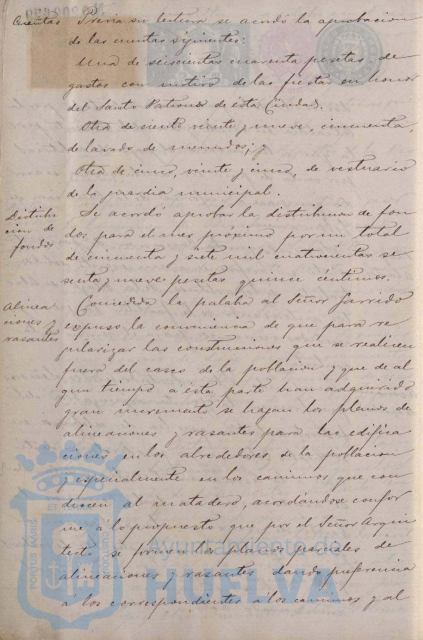 Cuentas Previa su lectura se acordó la aprobacion
de las cuentas siguientes:
Una de seiscientas cuarenta pesetas de
gastos con motivo de las fiestas en honor
del Santo Patrono de ésta Ciudad.
Otra de ciento veinte y nueve, cincuenta,
de lavado de menudos; y
Otra de cinco, veinte y cinco, de vestuario
de la guardia municipal.
Distribu Se acordó aprobar la distribucion de fon
cion de dos para el mes próximo por un total
fondos de cincuenta y siete mil cuatrocientas se
senta y nueve pesetas quince céntimos.
Alinea Concedida la palabra al Señor Garrido
ciones y expuso la conveniencia de que para re
rasantes gularizar las construcciones que se realicen
fuera del casco de la poblacion y que de al
gun tiempo a ésta parte han adquirido
gran incremento se hagan los planos de
alineaciones y rasantes para las edifica
ciones en los alrededores de la poblacion
y especialmente en los caminos que con
ducen al matadero, acordándose confor
me á lo propuesto que por el Señor Arqui
tecto se formen los planos parciales de
alineaciones y rasantes dando preferencia
á los correspondientes á los caminos y al
PORTUS MARIS ET TERRAE CUSTODIA
Ayuntamiento de
HUELVA